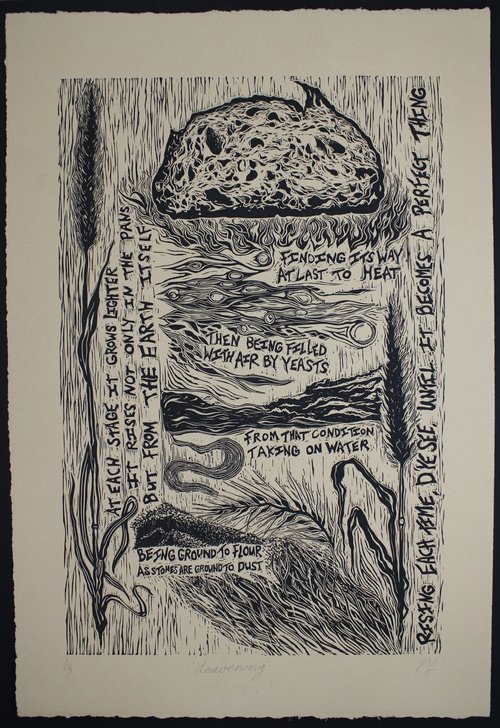 AT EACH STAGE IT GROWS LIGHTER
IT RISES NOT ONLY IN THE PANS
BUT FROM THE EARTH ITSELF
FINDING ITS WAY
AT LAST TO HEAT
THEN BEING FILLED
WITH AIR BY YEASTS
FROM THAT CONDITION
TAKING ON WATER
BEING GROUND TO FLOUR
AS STONES ARE GROUND TO DUST
RISING EACH TIME, D'YE SEE UNTIL IT BECOMES A PERFECT THING
'Leavening'